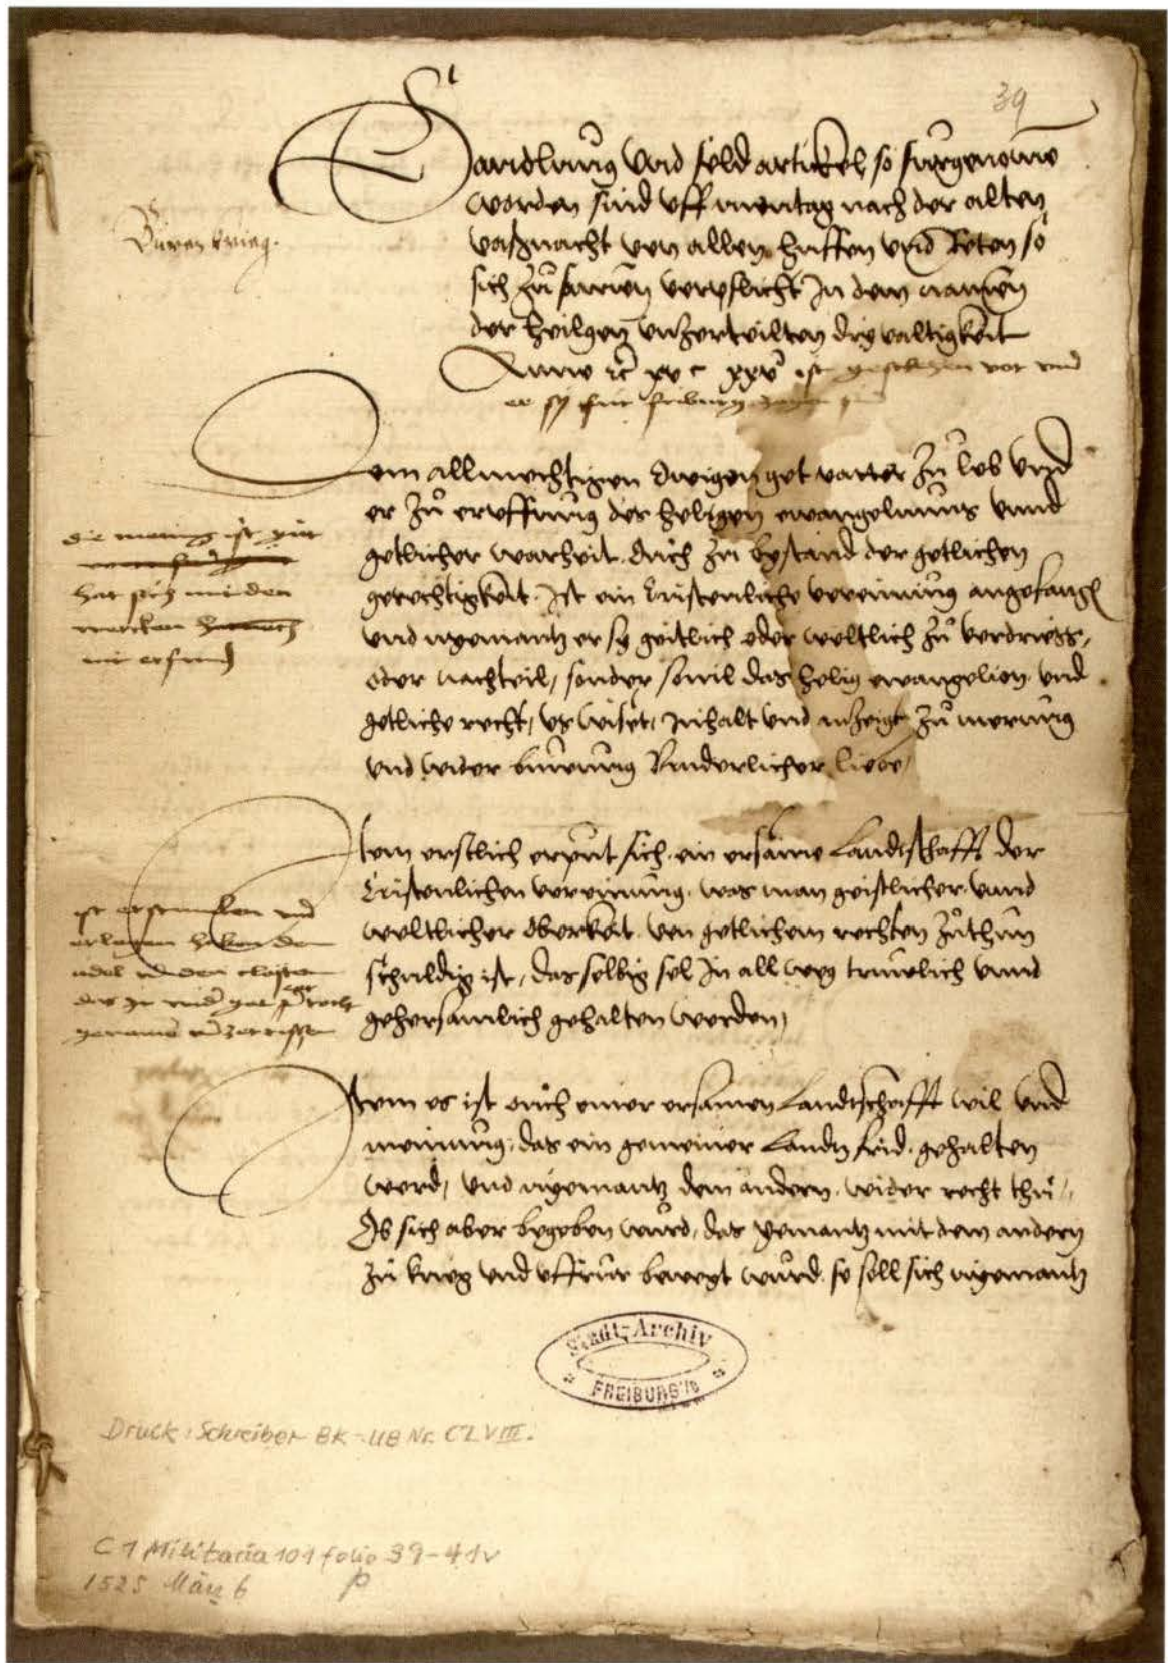 39
Handlung und feld artickel so furgenome
worden sind uff mentag nach der alten
vaßnacht von allen huffen und Reten so
sich zu samen verpflicht In dem namen
der heilgen unzerteilten dryvaltigkeit
Anno xv c xxv ist geschehen vor und
er sy fur friburg
Buren krieg.
Dem allmechtigen Ewigen got vatter zu lob und
er zu eruffnung des heligen ewangeliums unnd
getlicher warheit. Ouch zu bystand der getlichen
gerechtigkeit. Ist ein Cristenliche vereinung angefangen
und nyemantz er sy geistlich oder weltlich zu verdriess,
oder nachteil, sonder sovil das helig ewangelion und
getliche recht, us wiset, Inhalt und anzeigt zu merung
und wider buwung Bruderlicher liebe,
die meinung ist gut
hat sich in den
wercken
nit erfund
Item erstlich erput sich ein ersame Landtschafft der
Cristenlichen vereinung. was man geistlicher unnd
weltlicher Oberkeit von getlichem rechten zuthun
schuldig ist, das selbig sol In all weg truwlich unnd
gehorsamlich gehalten werden,
ist erstuncken und
erlogen haben dem
adel und den closter
das Ir wider got er und recht
genomen und zerrissen
Item es ist ouch einer ersamen Landtschafft wil und
meinung. das ein gemeiner Landtz frid. gehalten
werd, und nyemantz dem andern. wider recht thu,
Ob sich aber begeben wurd, das yemantz mit dem andern
zu krieg und uffrur bewegt wurd. so soll sich nyemantz
Stadt-Archiv
FREIBURG i/B
Druck: Schreiber BK-UB Nr. CLVIII.
C 1 Militaria 101 folio 39-41v
1525 März 6